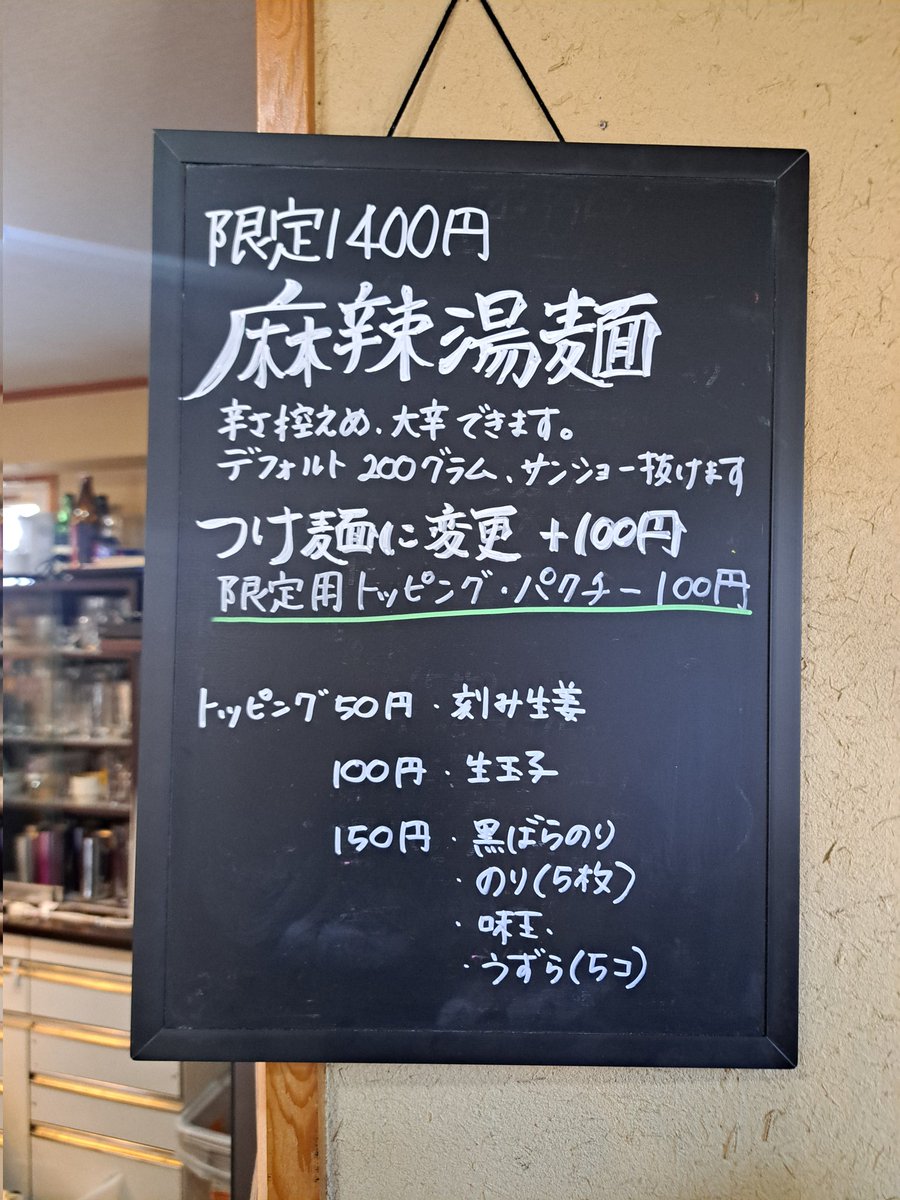 限定1400円
麻辣湯麺
辛さ控えめ、大辛できます。
デフォルト200グラム、サンショー抜けます
つけ麺に変更 +100円
限定用トッピング・パクチー100円
トッピング50円・刻み生姜
100円・生玉子
150円・黒ばらのり
・のり(5枚)
・味玉、
・うずら(5コ)